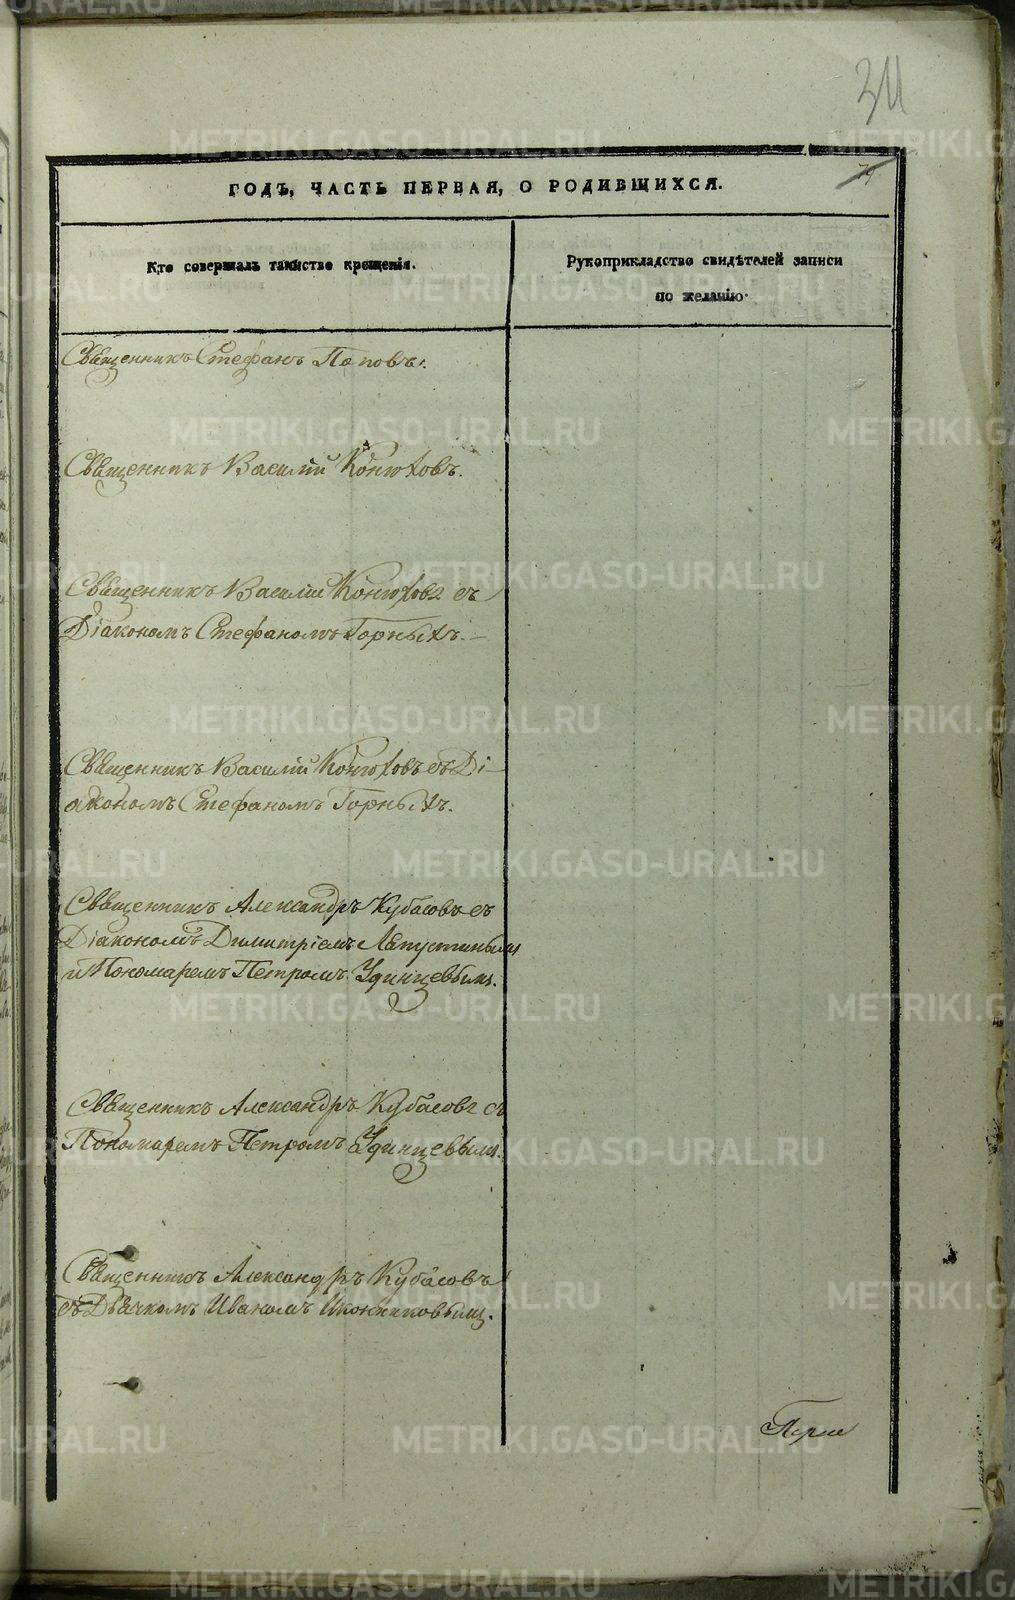 34
74
ГОДЪ, ЧАСТЬ ПЕРВАЯ, О РОДИВШИХСЯ.
Кто совершалъ таинство крещенія.
Рукоприкладство свидѣтелей записи
по желанію.
Священникъ Стефанъ Поповъ.
Священникъ Василій Конюховъ.
Священникъ Василій Конюховъ съ
Діакономъ Стефаномъ Горныхъ.
Священникъ Василій Конюховъ съ Ді-
акономъ Стефаномъ Горныхъ.
Священникъ Александръ Кубасовъ съ
Діакономъ Димитріемъ Лапустинымъ
и Пономаремъ Петромъ Удинцевымъ.
Священникъ Александръ Кубасовъ съ
Пономаремъ Петромъ Удинцевымъ.
Священникъ Александръ Кубасовъ
съ Дьячкомъ Иваномъ Иконниковымъ.
METRIKI.GASO-URAL.RU